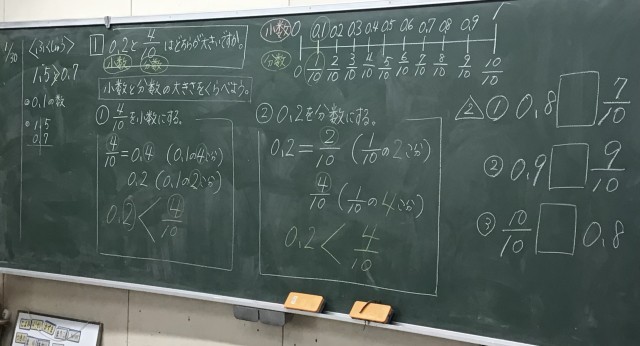 1/30
〈ふくしゅう〉
1.5 > 0.7
① 0.1の数
② 1.5
0.7
1 0.2と4/10はどちらが大きいですか。
小数 分数
小数と分数の大きさをくらべよう。
① 4/10を小数にする。
4/10 = 0.4 (0.1の4こ分)
0.2 (0.1の2こ分)
0.2 < 4/10
小数 0 0.1 0.2 0.3 0.4 0.5 0.6 0.7 0.8 0.9 1
分数 0 1/10 2/10 3/10 4/10 5/10 6/10 7/10 8/10 9/10 10/10
② 0.2を分数にする。
0.2 = 2/10 (1/10の2こ分)
4/10 (1/10の4こ分)
0.2 < 4/10
2 ① 0.8 □ 7/10
② 0.9 □ 9/10
③ 10/10 □ 0.8